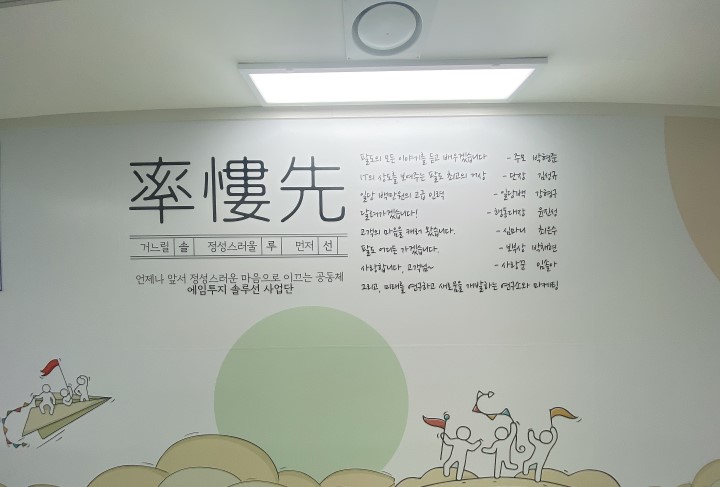 率慺先
거느릴 솔 정성스러울 루 먼저 선
언제나 앞서 정성스러운 마음으로 이끄는 공동체
에임투지 솔루션 사업단
팔도의 모든 이야기를 듣고 배우겠습니다 - 주모 박형준
IT의 상도를 보여주는 팔도 최고의 거상 - 단장 김성규
일당 백만원의 고급 인력 - 일당백 강현구
달려가겠습니다! - 행동대장 윤진성
고객의 마음을 캐러 왔습니다. - 심마니 최은수
팔도 어디든 가겠습니다. - 보부상 박채현
사랑합니다, 고객님~ - 사랑꾼 임솔아
그리고, 미래를 연구하고 새로움을 개발하는 연구소와 마케팅